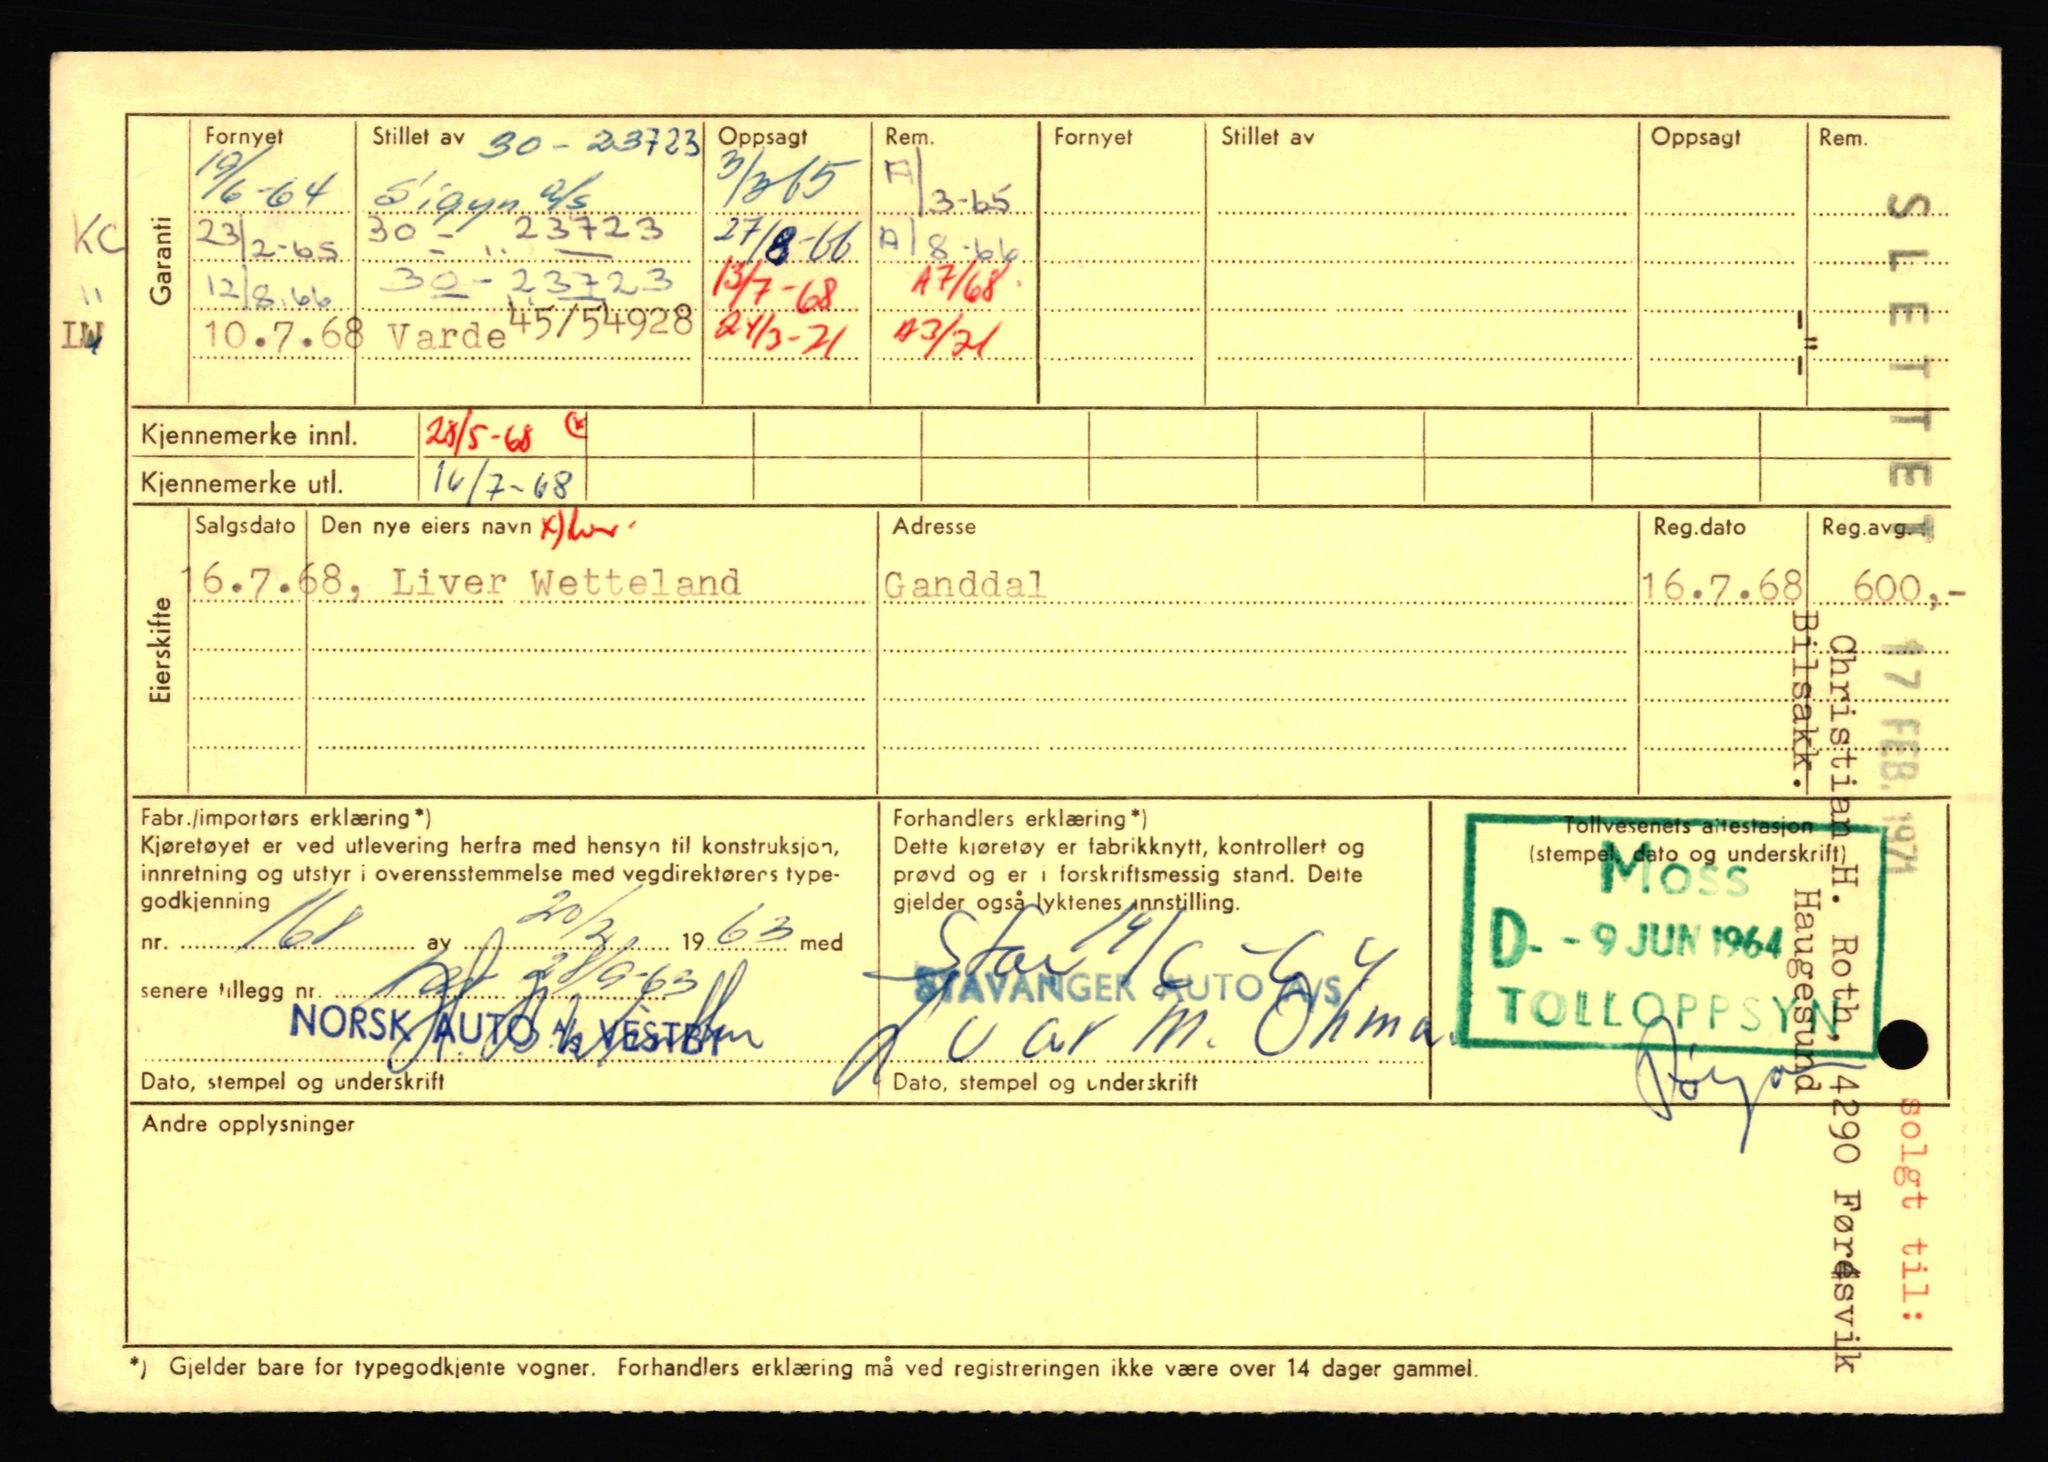 Garanti
Fornyet Stillet av 30 - 23723 Oppsagt Rem. Fornyet Stillet av Oppsagt Rem.
19/6-64 Sigyn a/s 3/3 65 A/3-65
KC 23/2-65 30 - " 23723 27/8-66 A/8-66
" 12/8.66 30 - 23723 13/7-68 A7/68
10.7.68 Varde 45/54928 24/3-71 A3/71
Kjennemerke innl. 28/5-68 (x
Kjennemerke utl. 16/7-68
Eierskifte
Salgsdato Den nye eiers navn x) Adresse Reg.dato Reg.avg.
16.7.68, Liver Wetteland Ganddal 16.7.68 600,-
Fabr./importørs erklæring*)
Kjøretøyet er ved utlevering herfra med hensyn til konstruksjon,
innretning og utstyr i overensstemmelse med vegdirektørens type-
godkjenning
nr. 168 av 20/3 1963 med
senere tillegg nr. 28/9-63
NORSK AUTO A/S VESTBY
Dato, stempel og underskrift
Forhandlers erklæring*)
Dette kjøretøy er fabrikknytt, kontrollert og
prøvd og er i forskriftsmessig stand. Dette
gjelder også lyktenes innstilling.
Stav 19/6-64
STAVANGER AUTO A/S
Ivar M. Öhman
Dato, stempel og underskrift
Tollvesenets attestasjon
(stempel, dato og underskrift)
MOSS
D - 9 JUN 1964
TOLLOPPSYN
Andre opplysninger
*) Gjelder bare for typegodkjente vogner. Forhandlers erklæring må ved registreringen ikke være over 14 dager gammel.
SLETTET 17 FEB. 1971
solgt til:
Christian H. Roth, 4290 Førdesvik
-"- Bilsakk. Haugesund